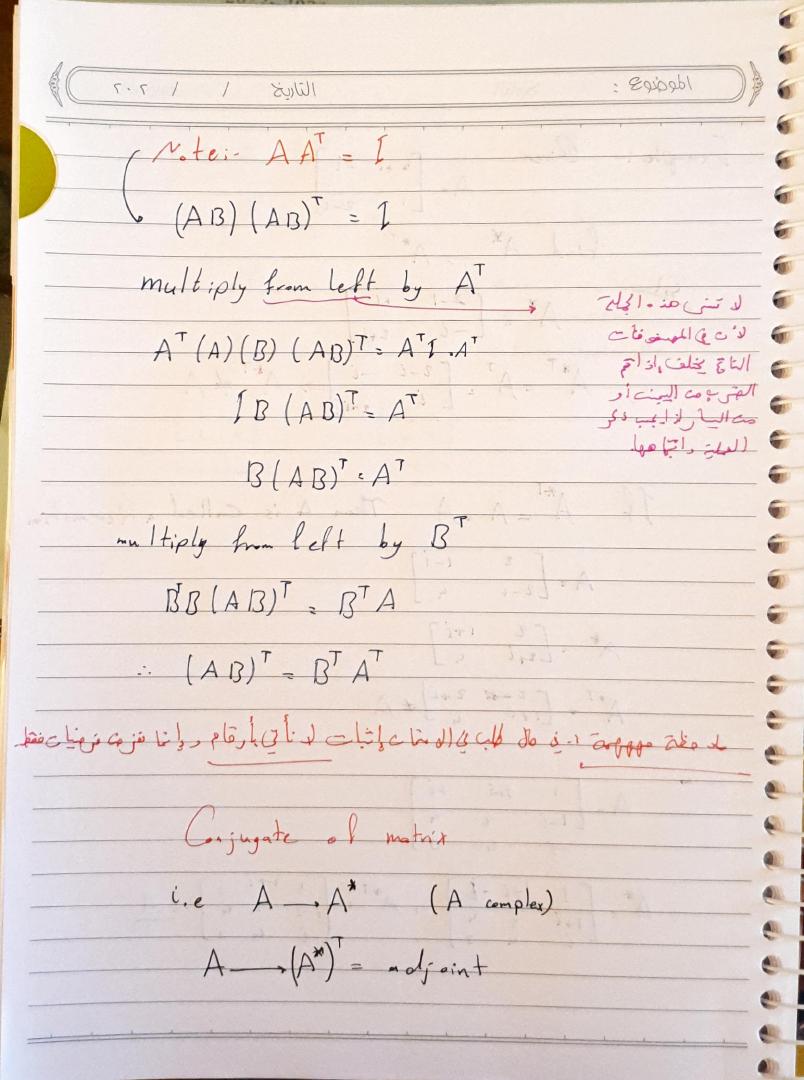 الموضوع : التاريخ / / ٢٠٢
Note:- A A^T = I
(AB) (AB)^T = I
multiply from left by A^T
لا تنسى هذه الجملة
لأن في المصفوفات
الناتج يختلف إذا تم
الضرب من اليمين أو
من اليسار لذا يجب ذكر
العملية واتجاهها.
A^T (A)(B) (AB)^T = A^T I . A^T
I B (AB)^T = A^T
B(AB)^T = A^T
multiply from left by B^T
B^T B (AB)^T = B^T A
∴ (AB)^T = B^T A^T
ملاحظة مهههمة :- في حال طلب في الامتحان إثبات لا نأتي بأرقام وإنما نفرض فرضيات فقط
Conjugate of matrix
i.e A → A^* (A complex)
A → (A^*)^T = adjoint